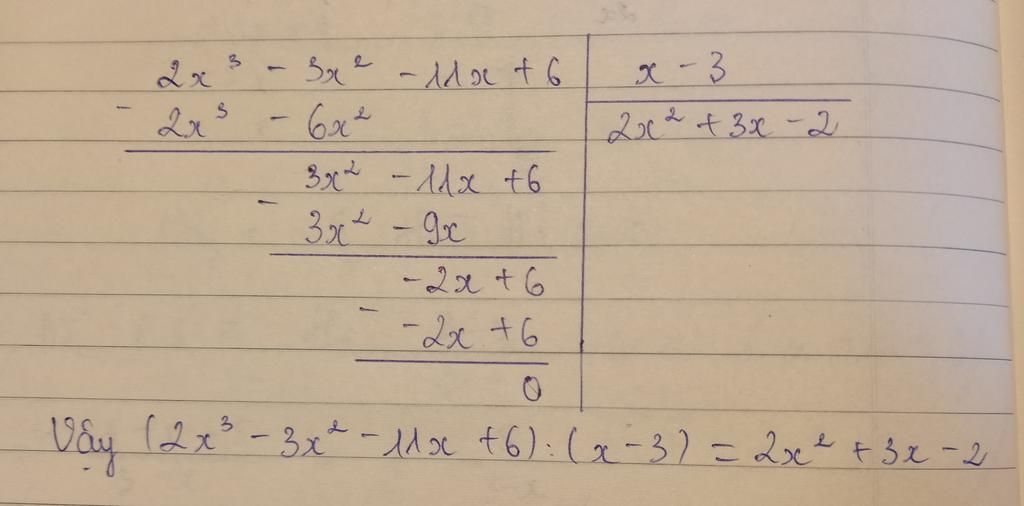 2x³ - 3x² - 11x + 6 | x - 3
- 2x³ - 6x² | 2x² + 3x - 2
3x² - 11x + 6
- 3x² - 9x
-2x + 6
- -2x + 6
0
Vậy (2x³ - 3x² - 11x + 6) : (x - 3) = 2x² + 3x - 2